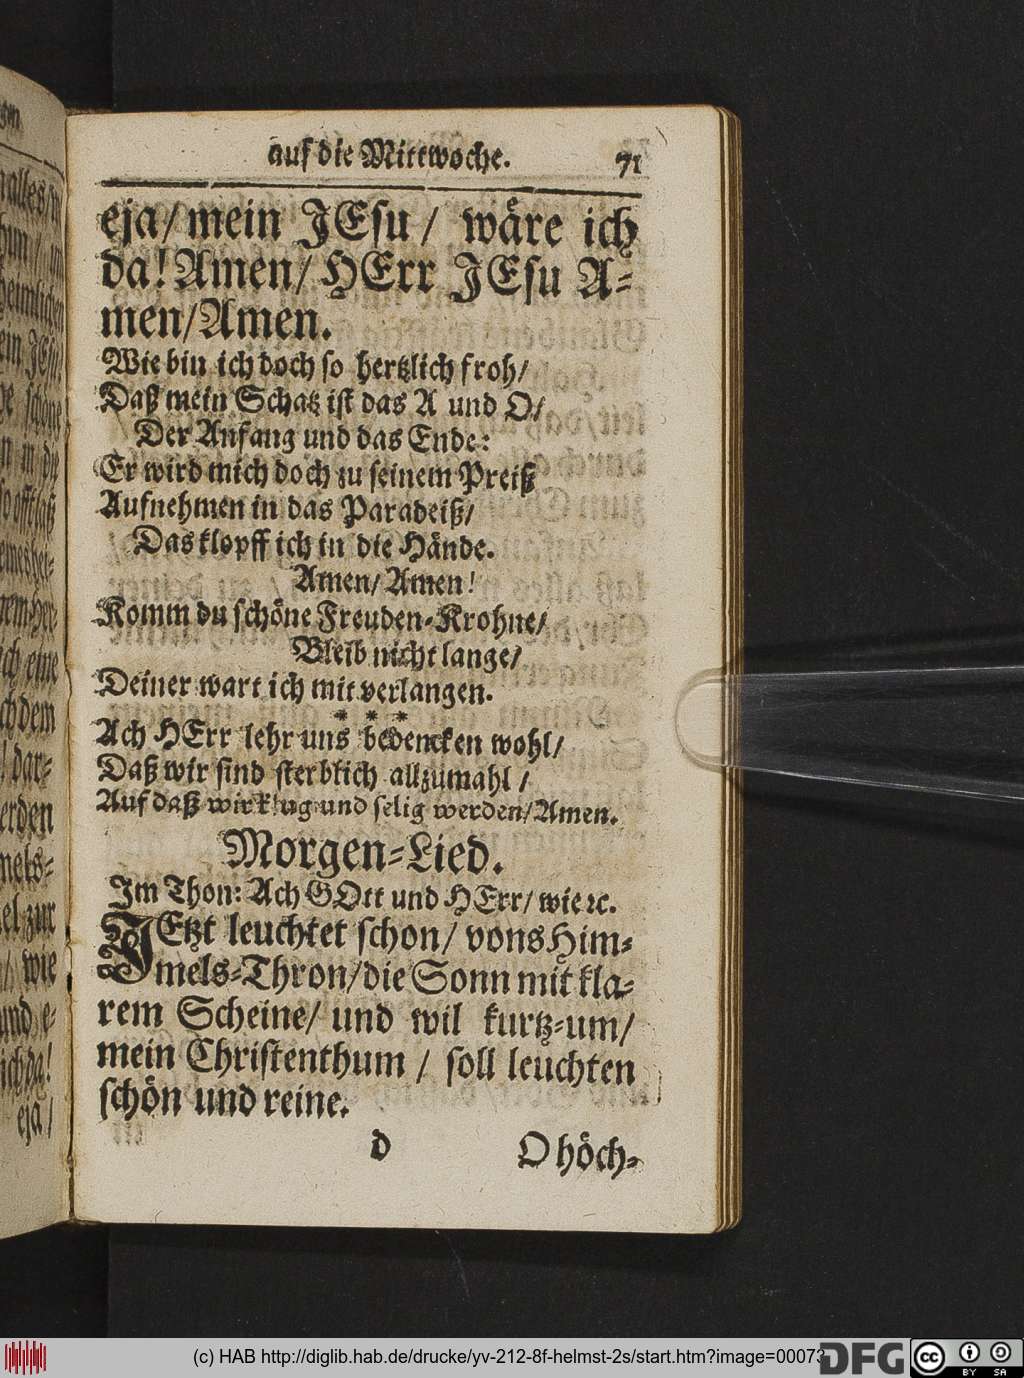 auf die Mittwoche. 71
eja/ mein JEsu / wäre ich
da! Amen/ HErr JEsu A-
men/Amen.
Wie bin ich doch so hertzlich froh/
Daß mein Schatz ist das A und O/
Der Anfang und das Ende:
Er wird mich doch zu seinem Preiß
Aufnehmen in das Paradeiß/
Das klopff ich in die Hände.
Amen/ Amen!
Komm du schöne Freuden-Krohne/
Bleib nicht lange/
Deiner wart ich mit verlangen.
* * *
Ach HErr lehr uns bedencken wohl/
Daß wir sind sterblich allzumahl /
Auf daß wir klug und selig werden/Amen.
Morgen-Lied.
Im Thon: Ach GOtt und HErr/ wie ꝛc.
JEtzt leuchtet schon/ vons Him-
mels-Thron/die Sonn mit kla-
rem Scheine/ und wil kurtz-um/
mein Christenthum / soll leuchten
schön und reine.
d O höch-
alles/
heimlichen
schöne
eine
dem
/ dar-
werden
mels-
zur
wie
und e-
ich da!
eja /
(c) HAB http://diglib.hab.de/drucke/yv-212-8f-helmst-2s/start.htm?image=00073
DFG
cc BY SA